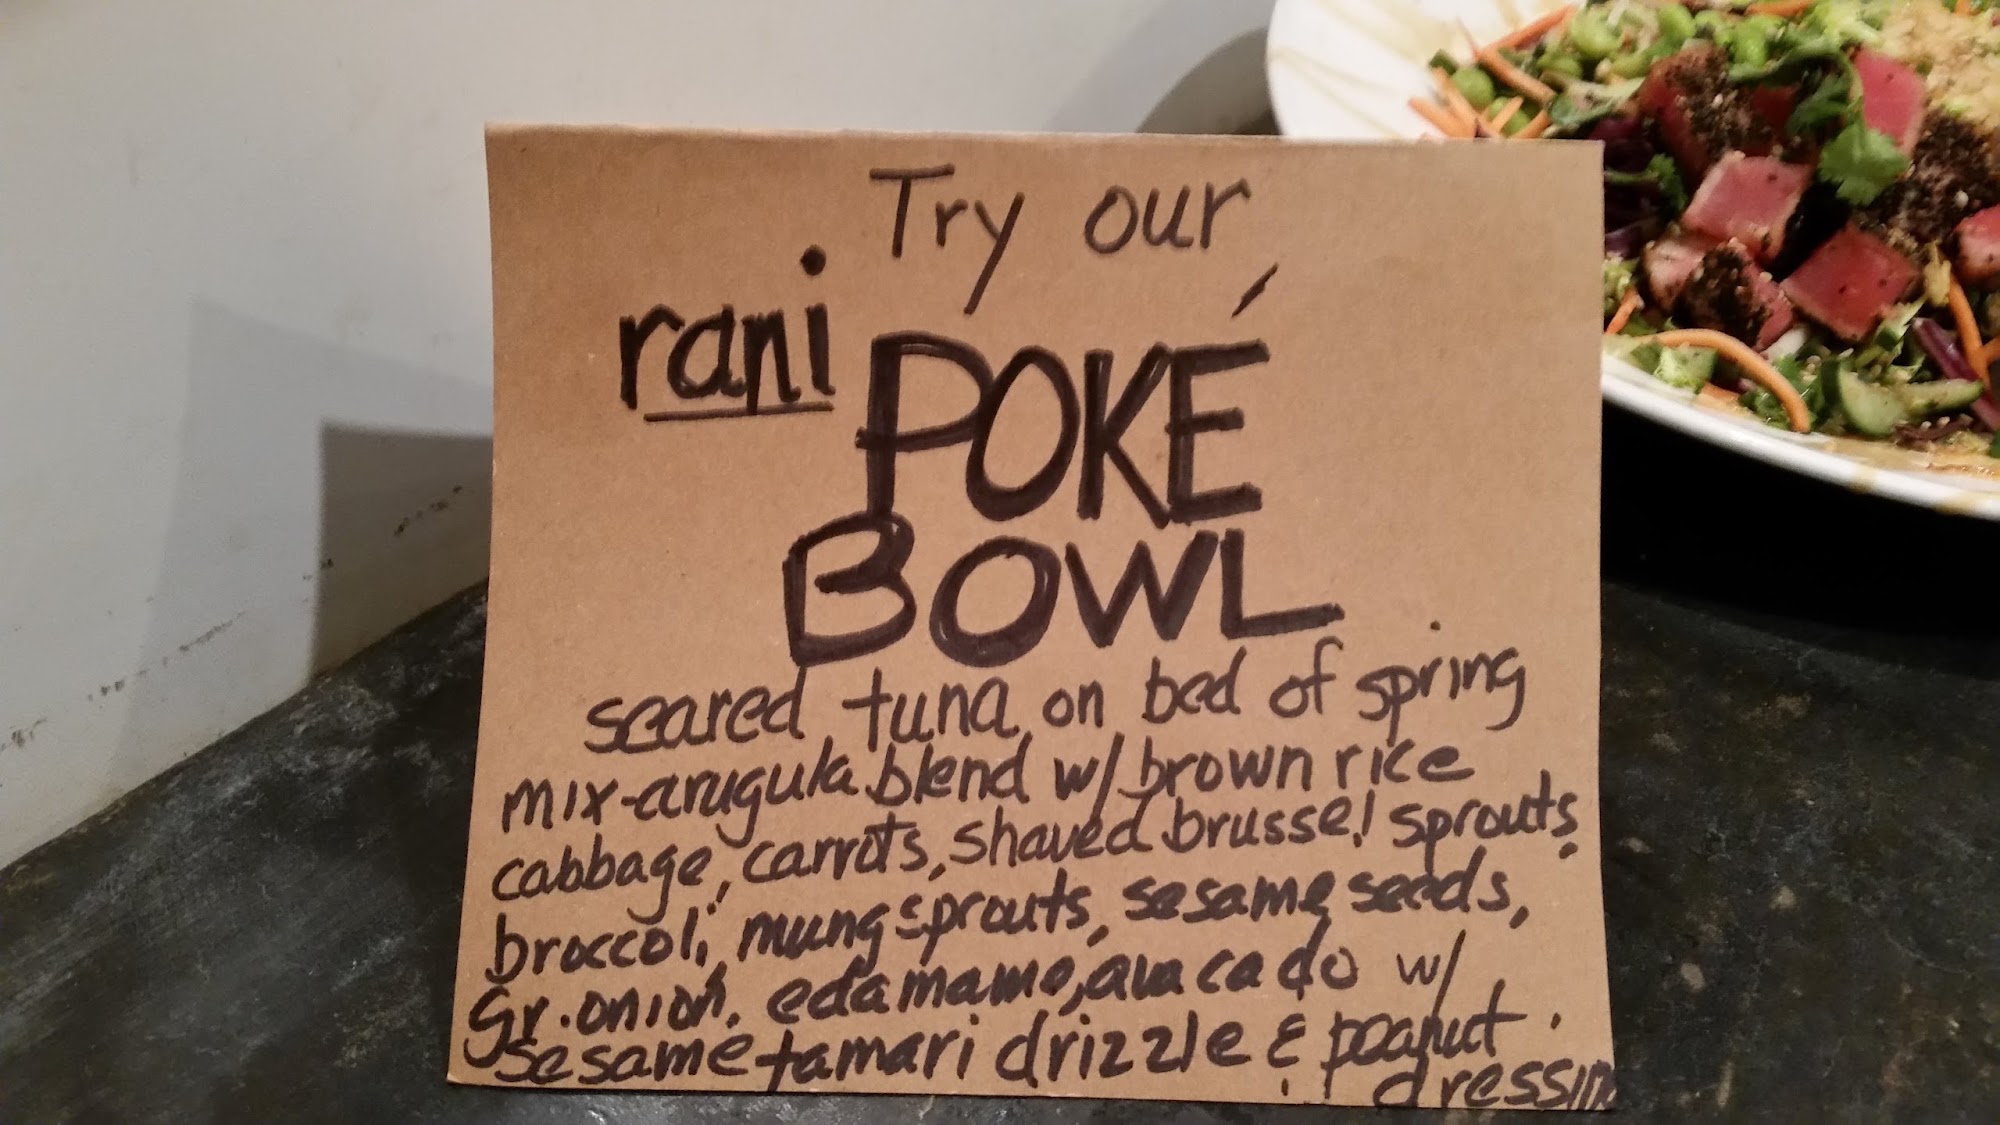 Try our
rani
POKÉ
BOWL
seared tuna on bed of spring
mix-arugula blend w/ brown rice
cabbage, carrots, shaved brussel sprouts,
broccoli, mung sprouts, sesame seeds,
Gr. onion, edamame, avacado w/
sesame tamari drizzle & peanut
dressing